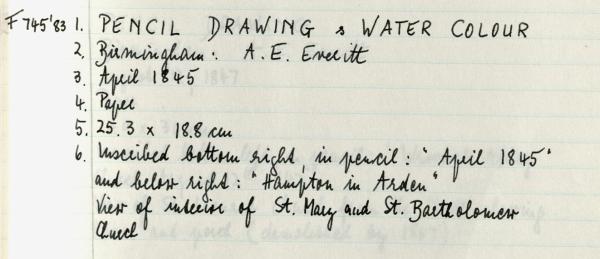 F745'83 1. PENCIL DRAWING & WATER COLOUR
2. Birmingham: A. E. Everitt
3. April 1845
4. Paper
5. 25.3 x 18.8 cm
6. Inscribed bottom right in pencil: "April 1845"
and below right: "Hampton in Arden"
View of interior of St. Mary and St. Bartholomew
Church